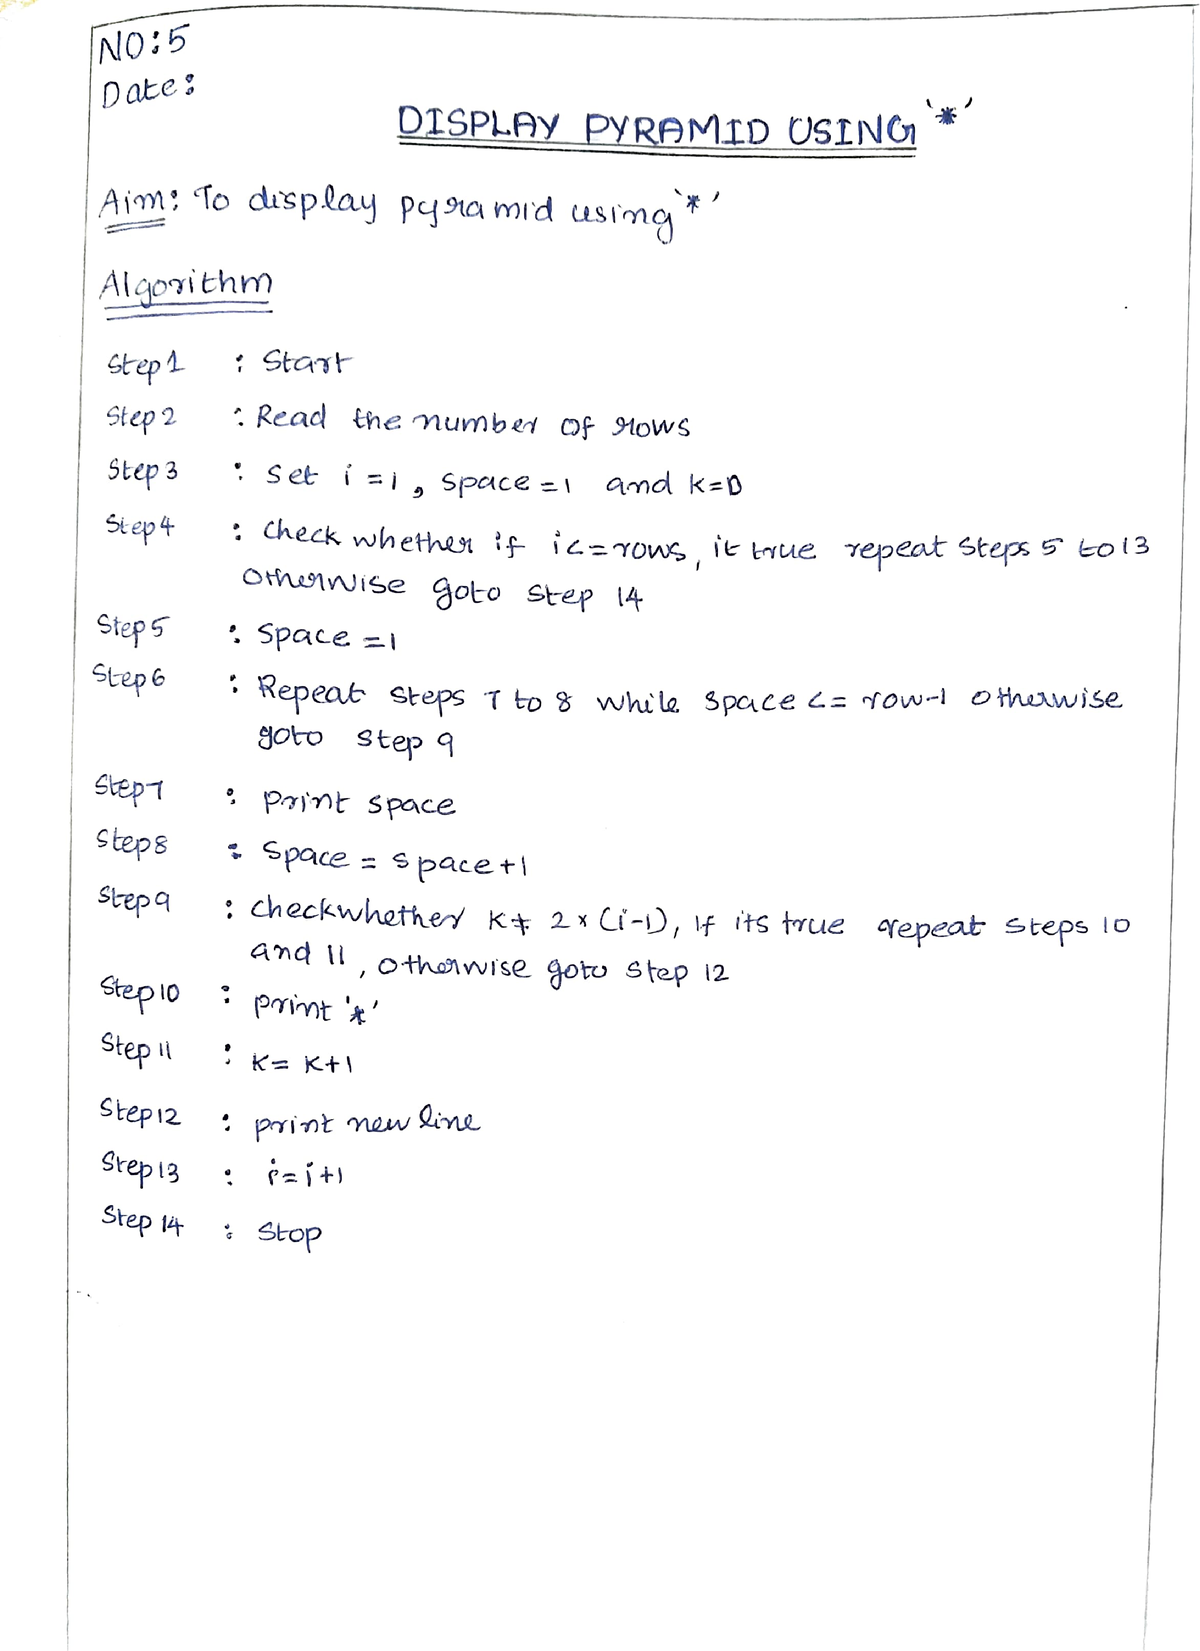 NO:5
Date:
DISPLAY PYRAMID USING '*'
Aim: To display pyramid using '*'
Algorithm
Step 1 : Start
Step 2 : Read the number of rows
Step 3 : set i=1, space=1 and k=0
Step 4 : check whether if i<=rows, it true repeat steps 5 to 13
otherwise goto step 14
Step 5 : space=1
Step 6 : Repeat steps 7 to 8 while space <= row-1 otherwise
goto step 9
Step 7 : print space
Step 8 : space = space+1
Step 9 : checkwhether k≠ 2*(i-1), If its true repeat steps 10
and 11, otherwise goto step 12
Step 10 : print '*'
Step 11 : K= K+1
Step 12 : print new line
Step 13 : i=i+1
Step 14 : Stop